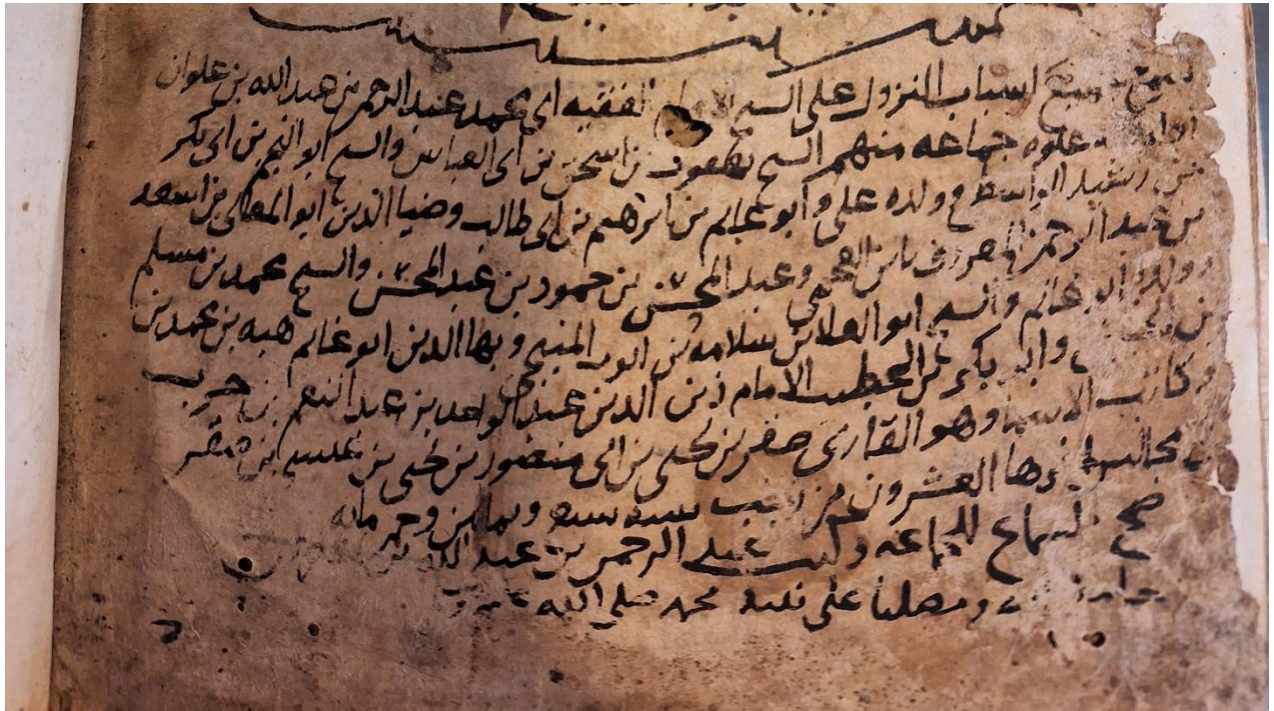 سمع جميع اسباب النزول على الشيخ الامام الفقيه ابي محمد عبد الرحمن بن عبد الله بن علوان
جماعه منهم الشيخ يعقوب بن اسحق بن ابي العباس والشيخ ابو النجم بن ابي بكر
بن رشيد الواسطي وولده علي وابو غانم بن ابرهيم بن ابي طالب وضيا الدين ابو المعالي بن اسعد
بن عبد الرحمن المعروف بابن العجمي وعبد المحسن بن حمود بن عبد المحسن والشيخ محمد بن مسلم
وولده ابو غانم والشيخ ابو العلا بن سلامه بن ايوب المنبجي وبها الدين ابو غانم هبه بن محمد بن
وابو بكر بن الخطيب الامام زين الدين عبد الواحد بن عبد المنعم بن حرب
وكاتب الاسما وهو القارئ صقر بن يحيى بن ابي منصور بن يحيى بن عيسى بن صقر
في مجالس اخرها العشرون من رجب سنه سبع وثمانين وخمسمائه
صح السماع للجماعه وكتب عبد الرحمن بن عبد الله بن
ومصليا على نبيه محمد صلى الله عليه